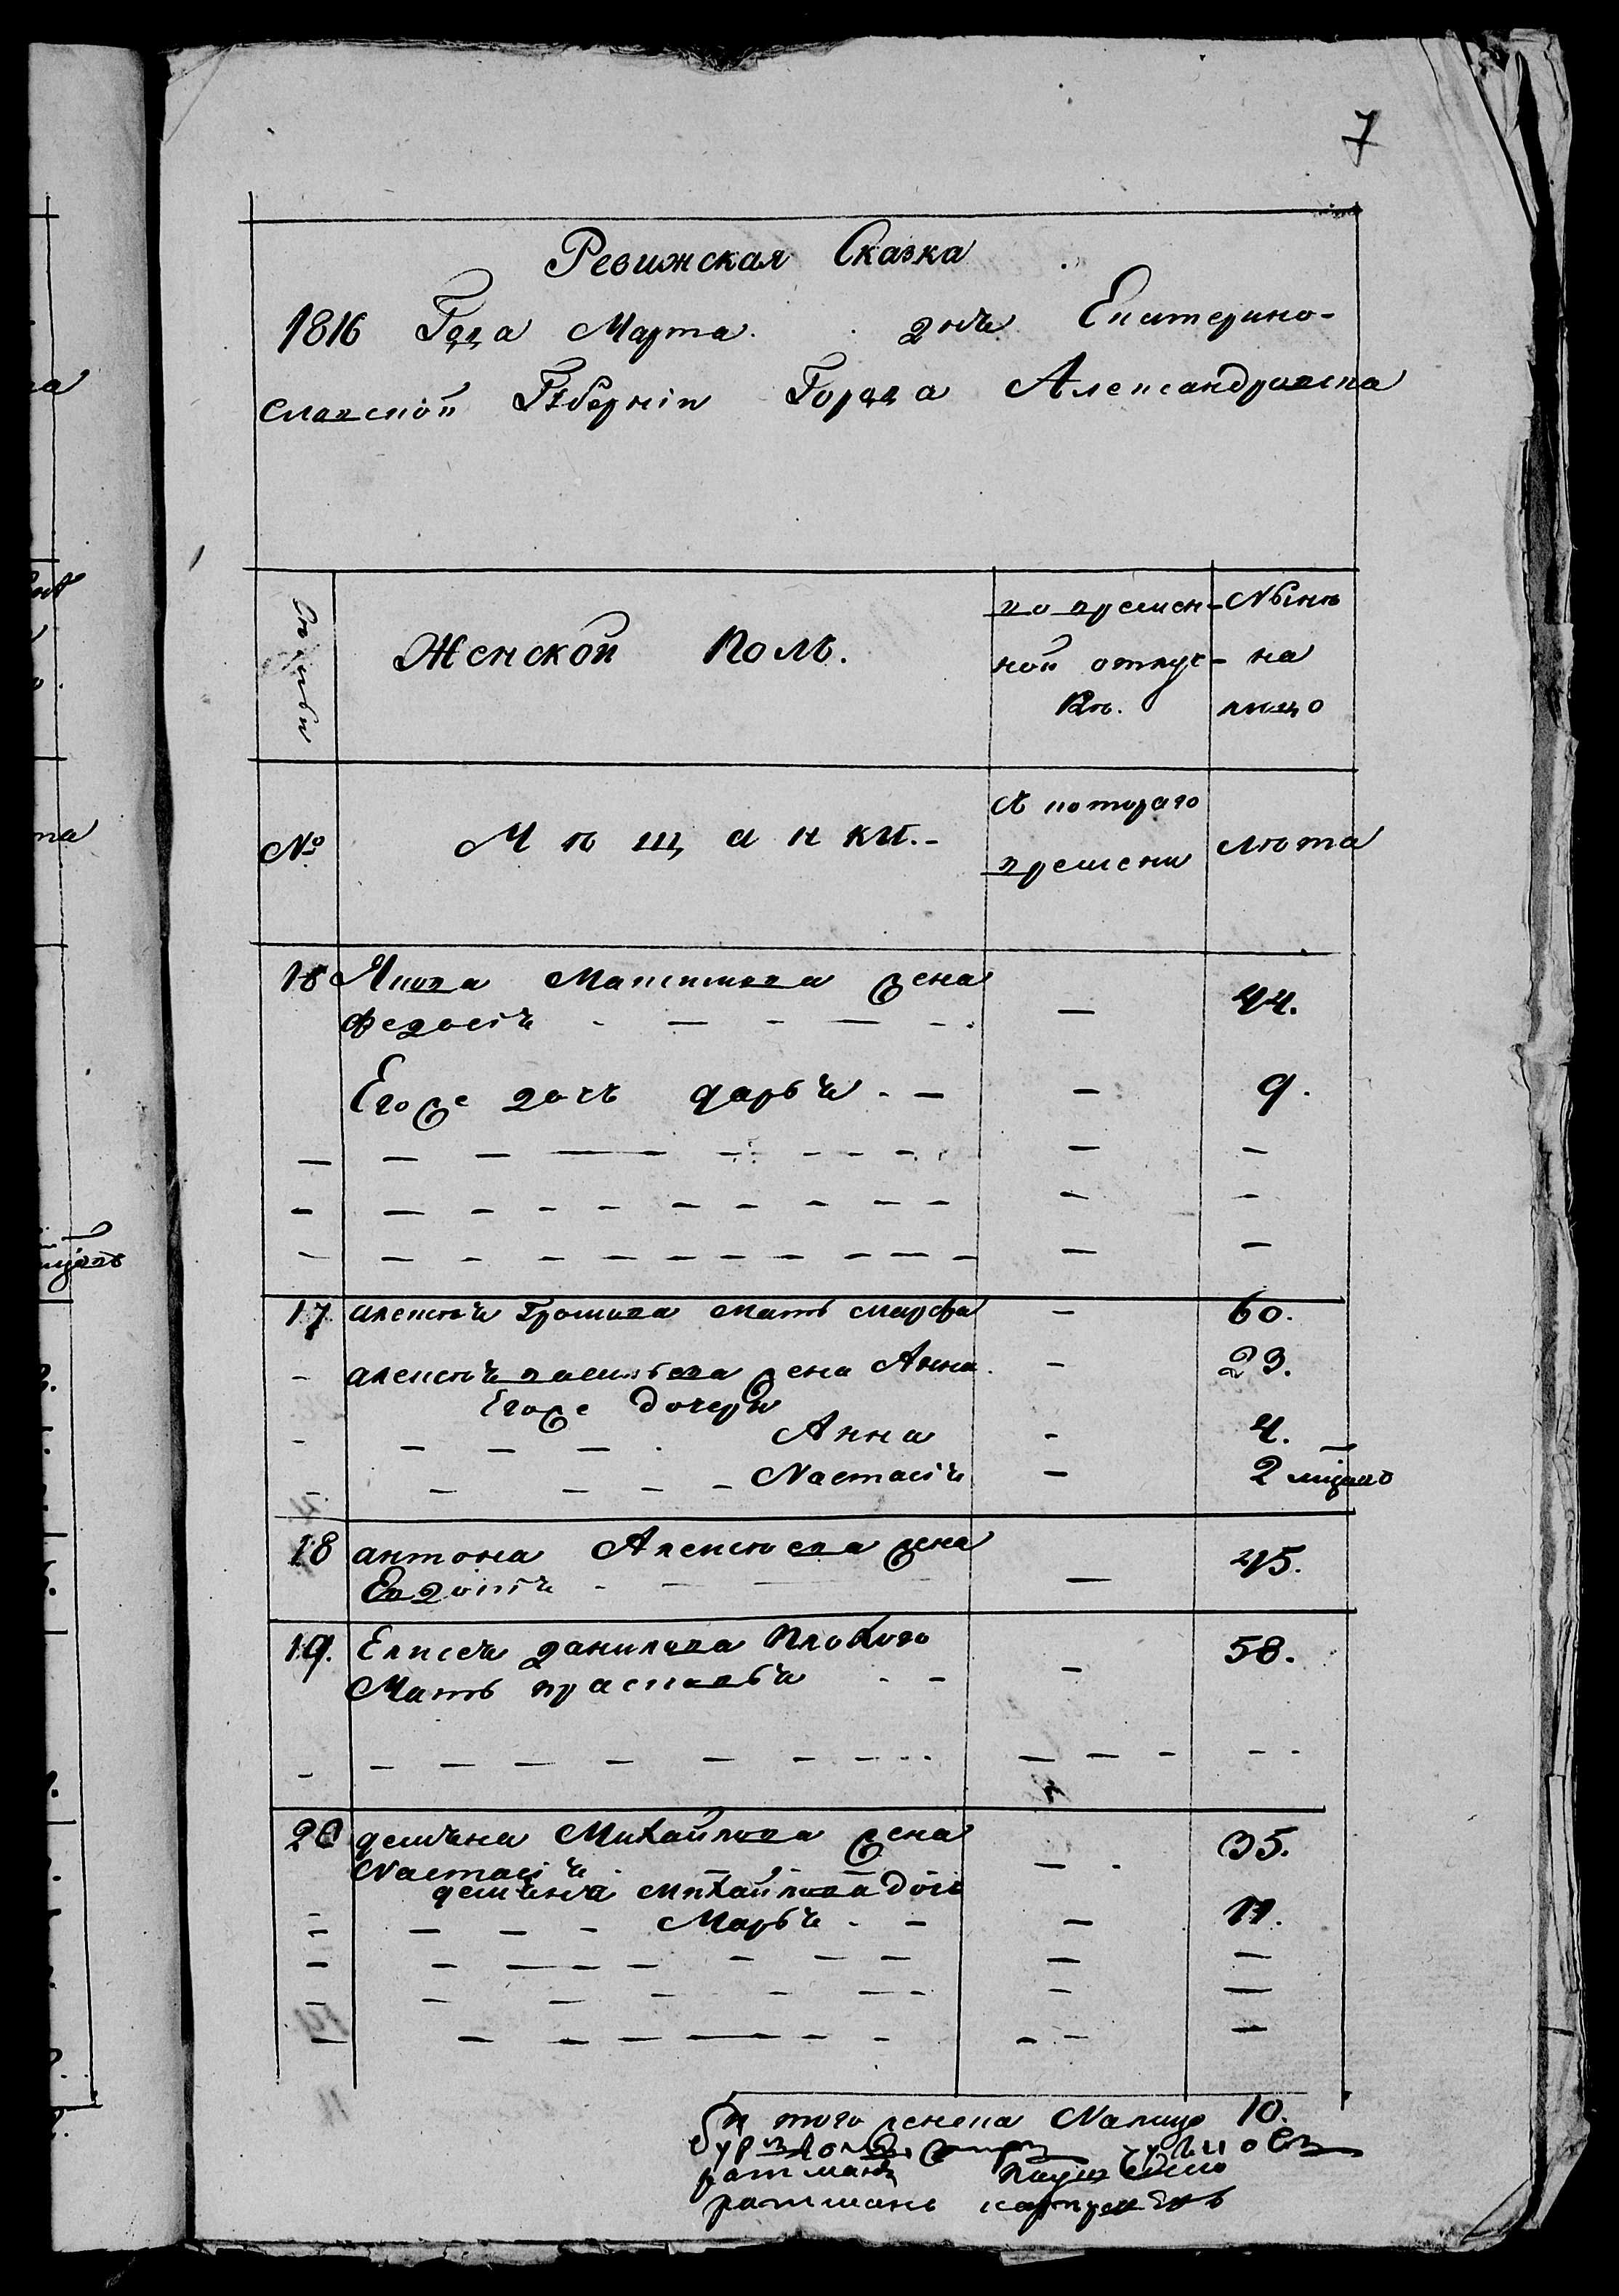 7
Ревижская Сказка
1816 Года Марта дня Екатерино-
славской Губерніи Города Александровска
Семьи
Женской Полъ.
во времен-
ной отлуч-
кѣ.
Нынѣ
на
лицо
№
Мѣщанки.-
С котораго
времени
лѣта
16 Якова Матвѣева жена
Федосія - 44.
Егоже дочь дарья - 9.
17 алексѣя Громова мать марфа - 60.
- алексѣя васильева жена Анна - 23.
Егоже дочери
Анна - 4.
Настасія - 2 мѣсяцовъ
18 антона Алексѣева жена
Евдокія - 45.
19. Елисея данилова Плохого
Мать прасковья - 58.
20 демьяна Михайлова жена
Настасія - 35.
демьяна Михайлова дочь
Марья - 11.
И того женска Налицо 10.
ратманъ
ратманъ